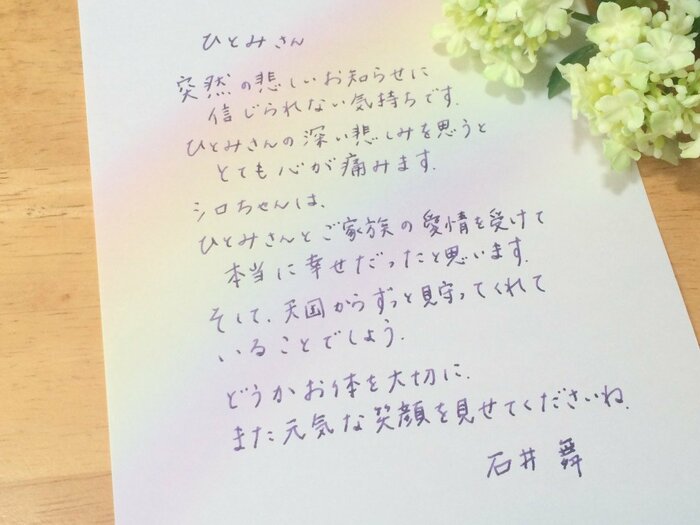 ひとみさん
突然の悲しいお知らせに
信じられない気持ちです.
ひとみさんの深い悲しみを思うと
とても心が痛みます.
シロちゃんは、
ひとみさんとご家族の愛情を受けて
本当に幸せだったと思います.
そして、天国からずっと見守ってくれて
いることでしょう.
どうかお体を大切に.
また元気な笑顔を見せてくださいね.
石井 舞